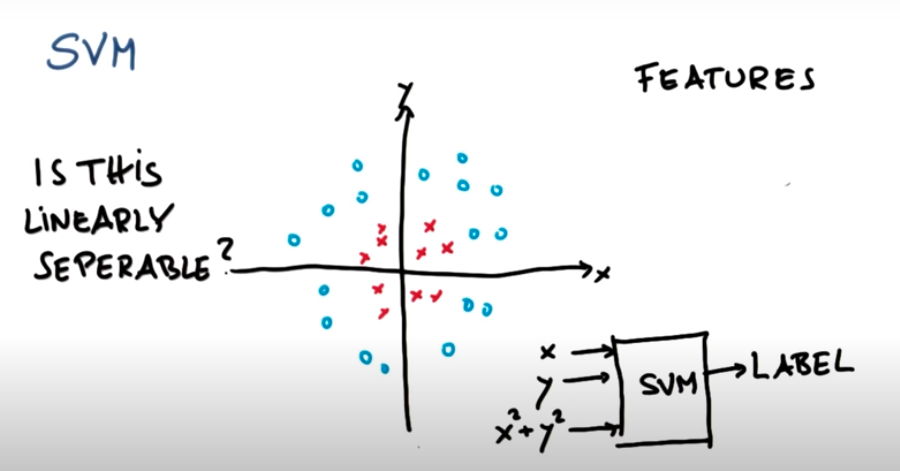 SVM
FEATURES
y
IS THIS
LINEARLY
SEPERABLE?
x
x
y
x²+y²
SVM
LABEL